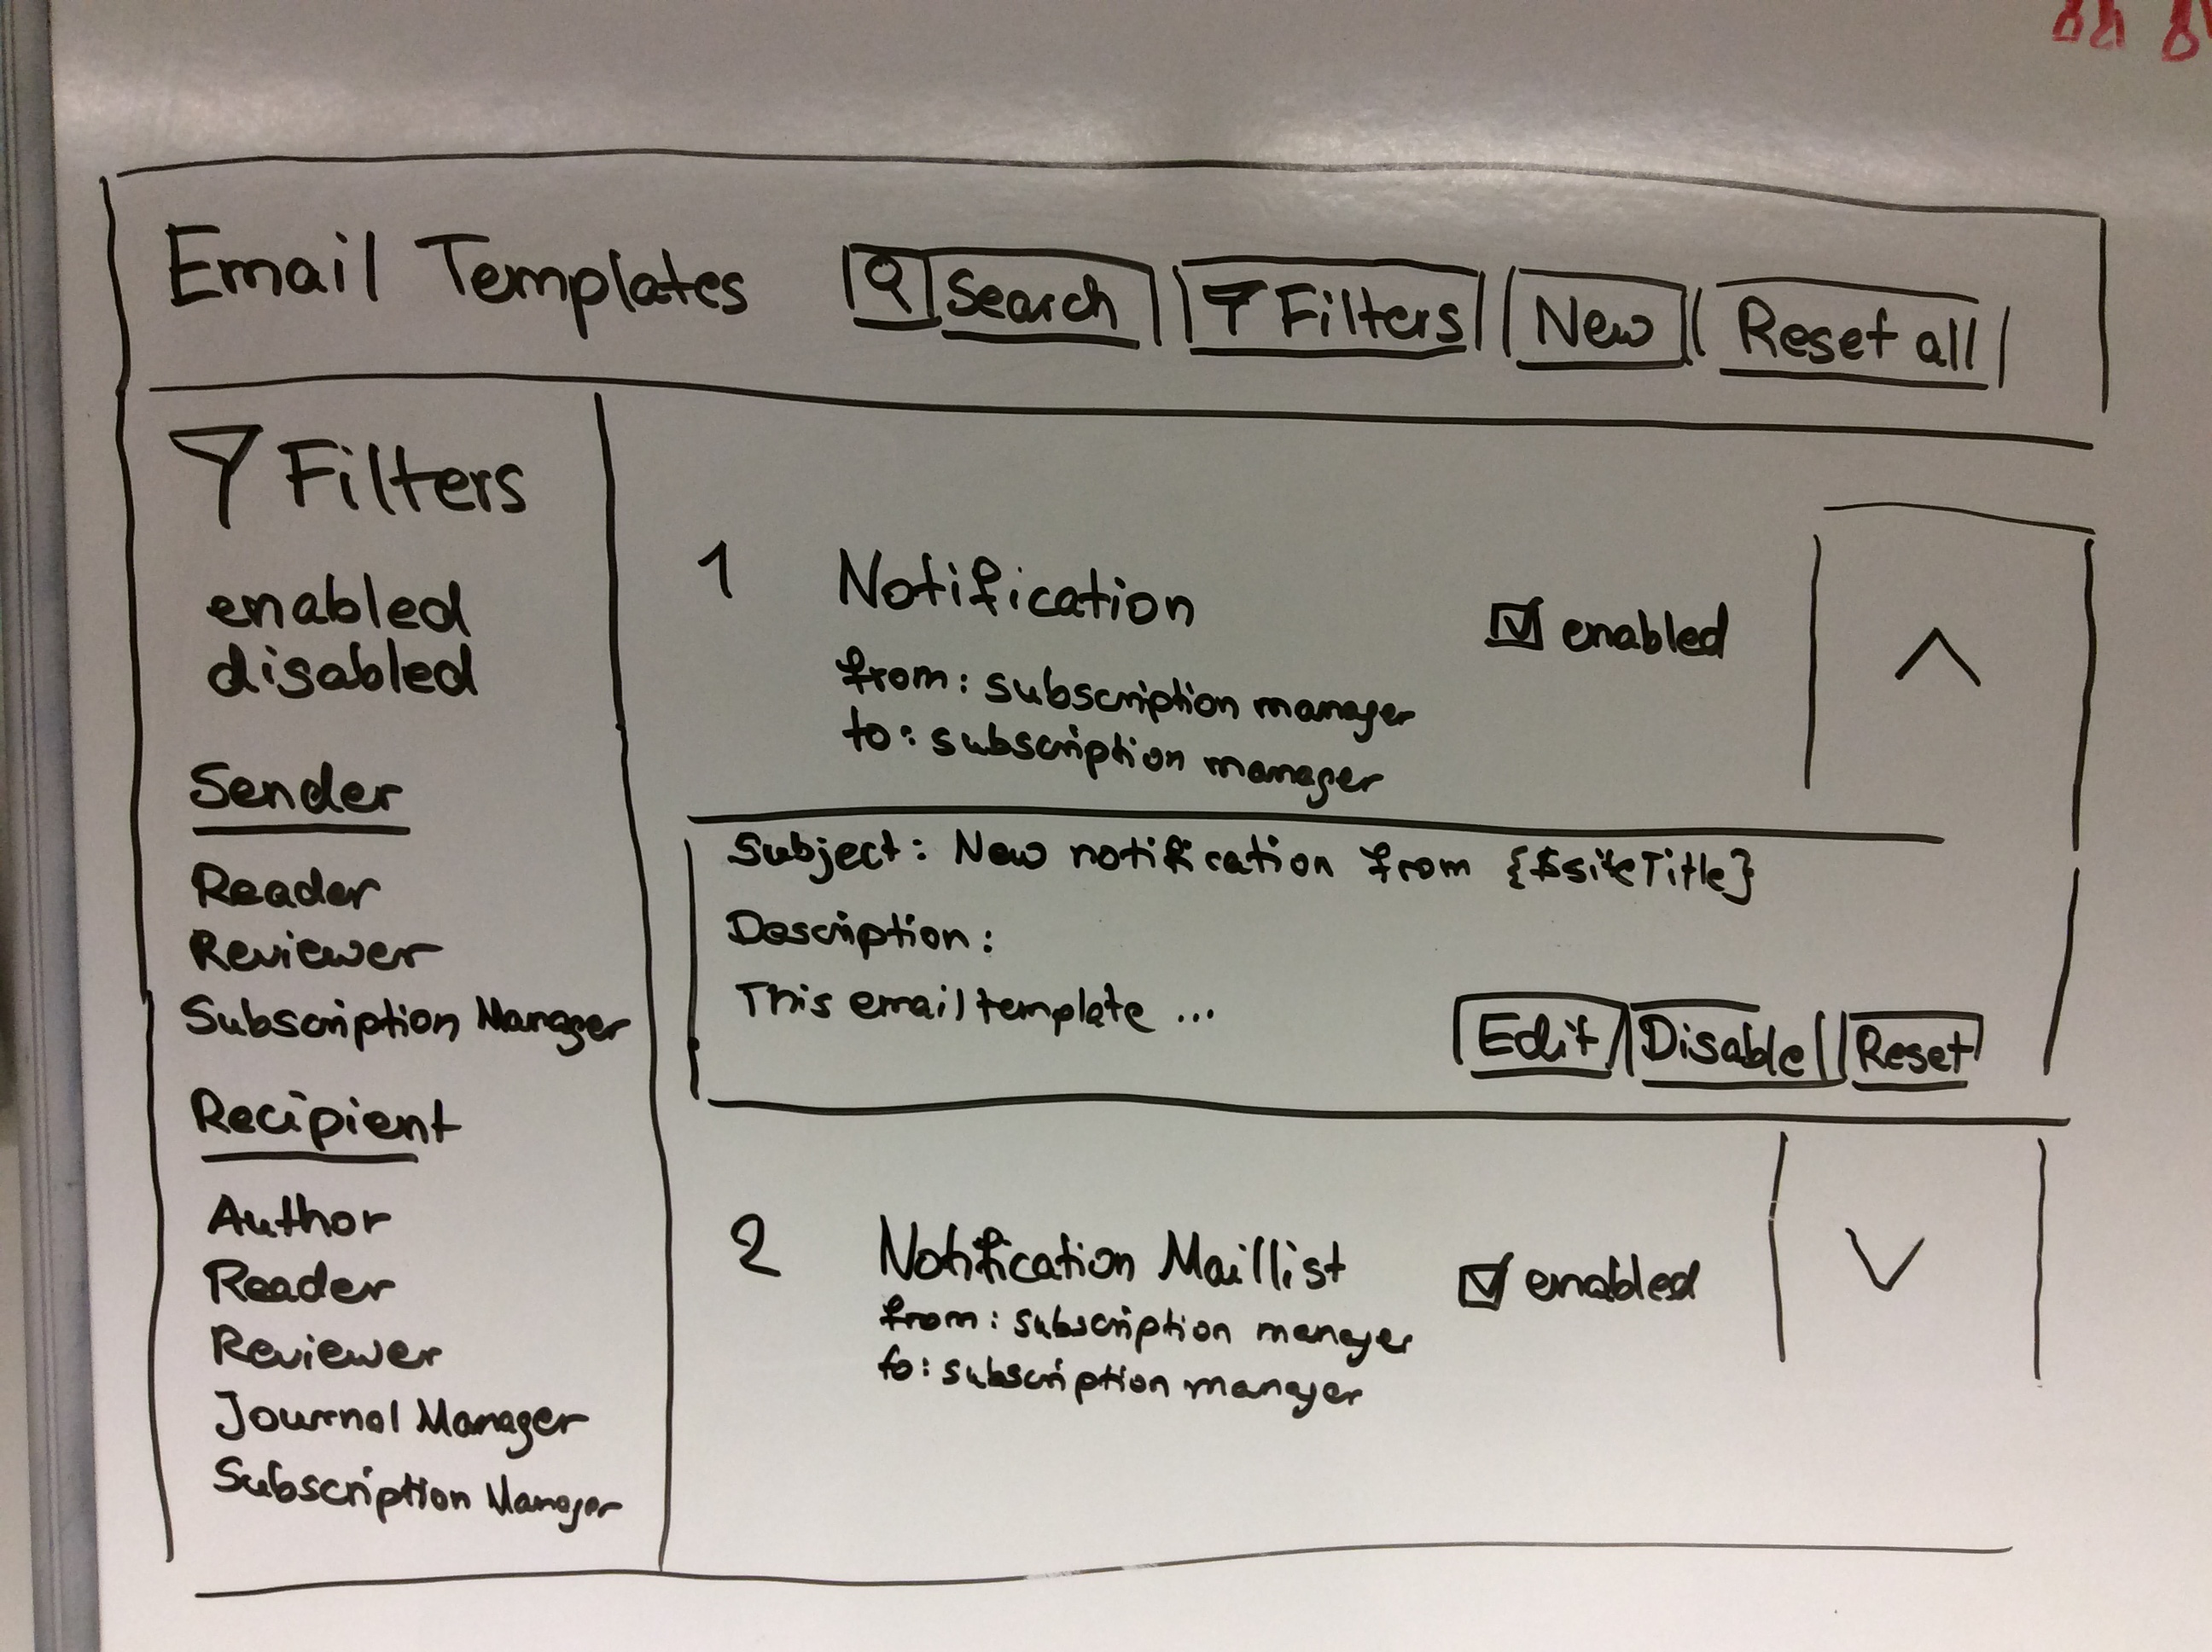 Email Templates Search Filters New Reset all
Filters
enabled
disabled
Sender
Reader
Reviewer
Subscription Manager
Recipient
Author
Reader
Reviewer
Journal Manager
Subscription Manager
1 Notification enabled
from: subscription manager
to: subscription manager
Subject: New notification from {$siteTitle}
Description:
This email template ...
Edit Disable Reset
2 Notification Maillist enabled
from: subscription manager
to: subscription manager